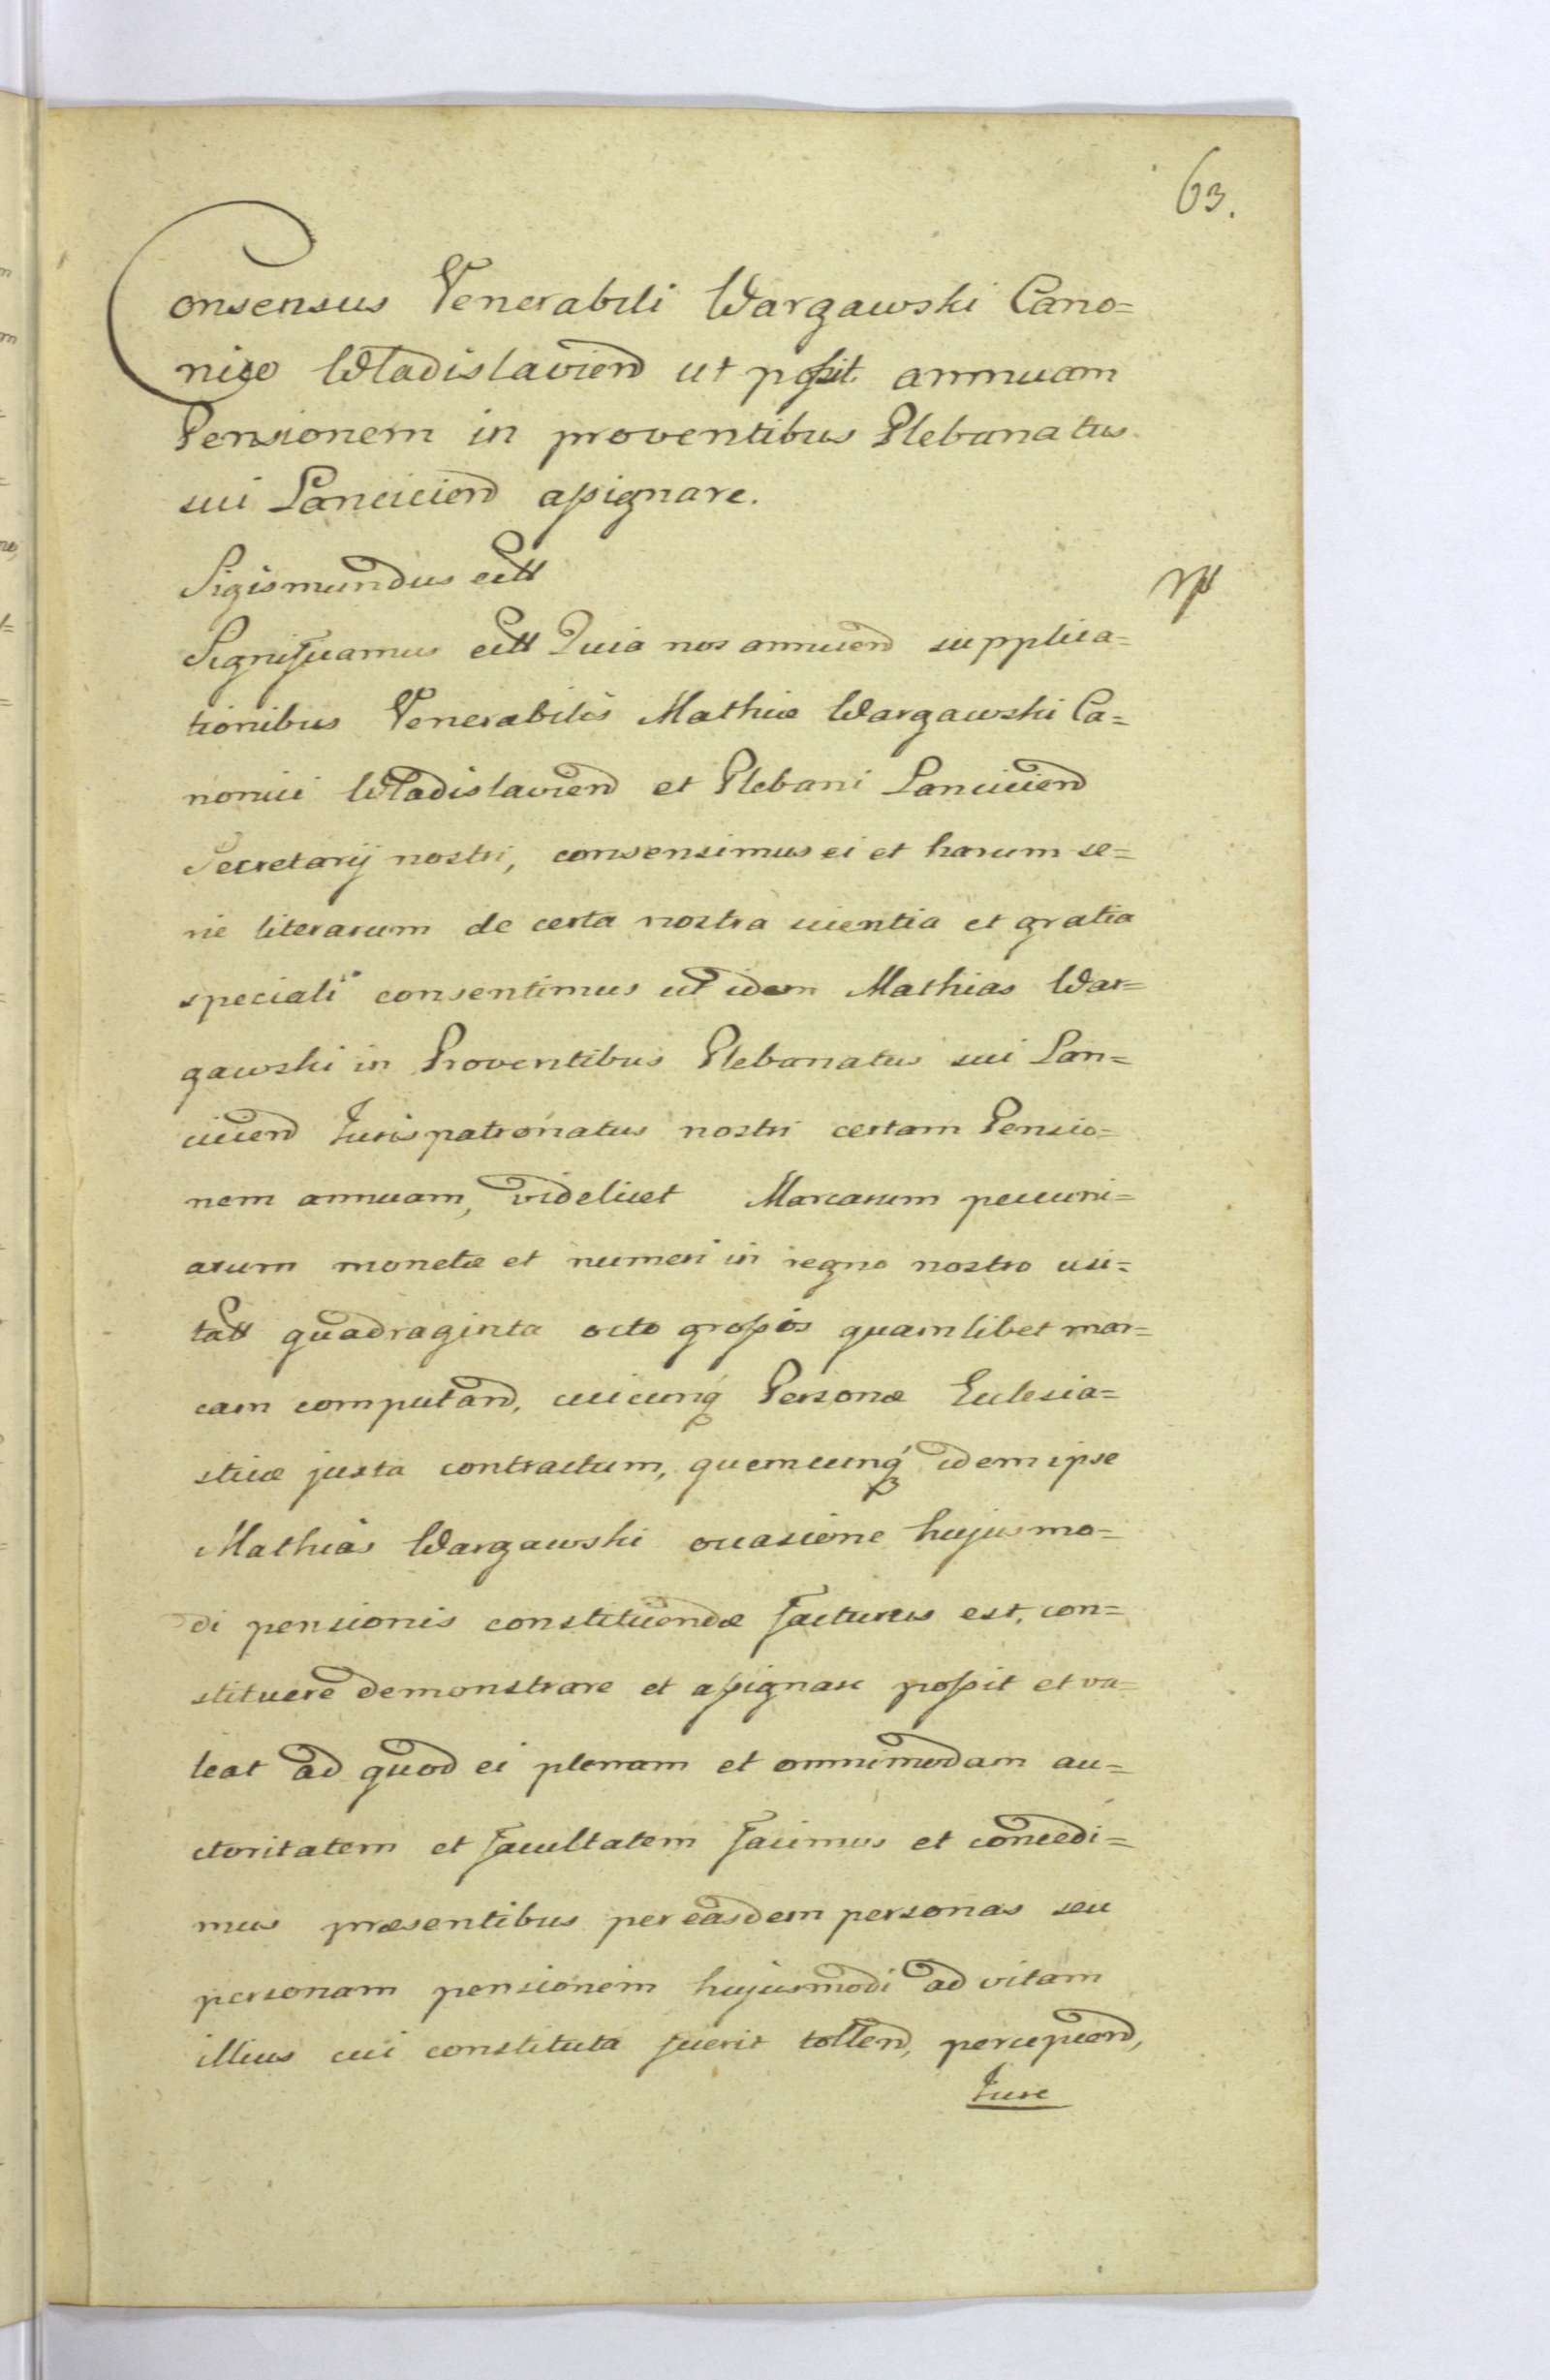 63.
Consensus Venerabili Wargawski Cano=
nico Wladislaviend ut possit annuam
Pensionem in proventibus Plebanatus
sui Lanciciend assignare.
Sigismundus ectt
Significamus ectt Quia nos annuend supplica=
tionibus Venerabilis Mathiæ Wargawski Ca=
nonici Wladislaviend et Plebani Lanciciend
Secretarij nostri, consensimus ei et harum se=
rie literarum de certa nostra scientia et gratia
speciali consentimus ut idem Mathias War=
gawski in Proventibus Plebanatus sui Lan=
ciciend Jurispatronatus nostri certam Pensio=
nem annuam, videlicet Marcarum pecuni=
arum monetæ et numeri in regno nostro usi=
tatt quadraginta octo grossos quamlibet mar=
cam computand, cuicunq Personæ Eclesia=
sticæ juxta contractum, quemcunq idem ipse
Mathias Wargawski occasione hujusmo=
di pensionis constituendæ facturus est, con=
stituere demonstrare et assignare possit et va=
leat ad quod ei plenam et omnimodam au=
ctoritatem et facultatem facimus et concedi=
mus præsentibus per easdem personas seu
personam pensionem hujusmodi ad vitam
illius cui constituta fuerit tollend, percipiend,
Jure